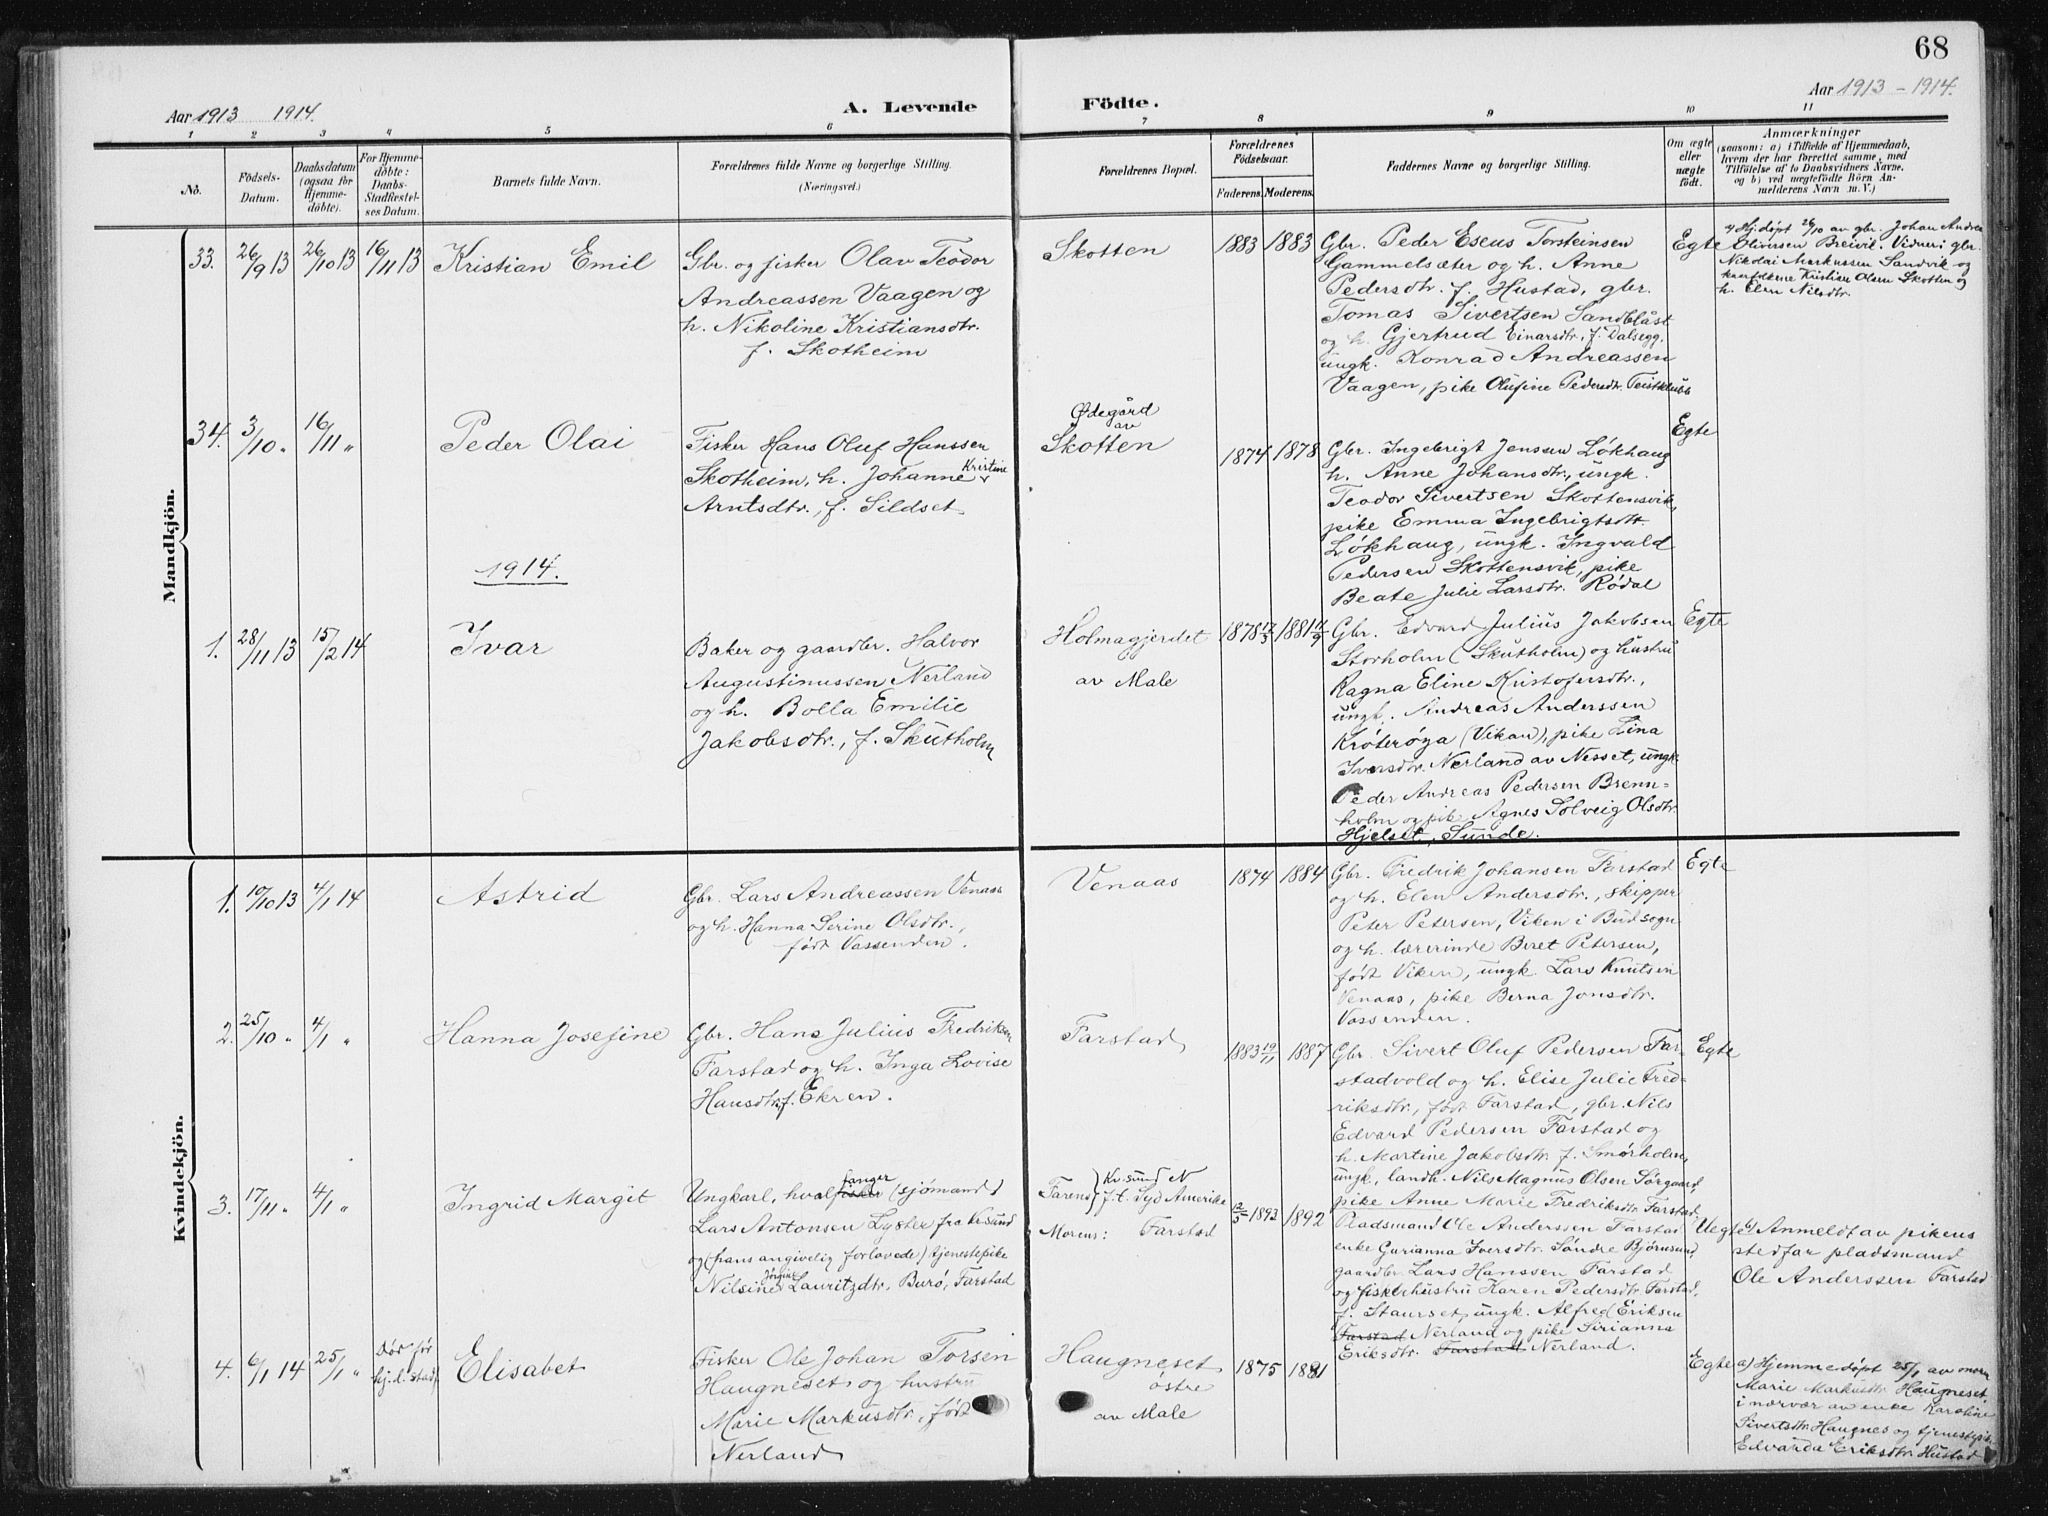 68
Aar 1913 1914.
A. Levende
Födte.
Aar 1913 - 1914.
1 2 3 4 5 6 7 8 9 10 11
No.
Födsels-
Datum.
Daabsdatum
(ogsaa for
Hjemme-
döbte).
For Hjemme-
döbte:
Daabs-
Stadfæstel-
ses Datum.
Barnets fulde Navn.
Forældrenes fulde Navne og borgerlige Stilling.
(Næringsvei.)
Forældrenes Bopæl.
Forældrenes
Födselsaar.
Faderens. Moderens.
Faddernes Navne og borgerlige Stilling.
Om ægte
eller
nægte
födt.
Anmærkninger
(saasom: a) i Tilfælde af Hjemmedaab,
hvem der har forrettet samme, med
Tilföielse af to Daabsvidners Navne,
og b) ved uægtefödte Börn An-
melderens Navn m. V.)
Mandkjön.
33. 26/9 13 26/10 13 16/11 13
Kristian Emil
Gbr. og fisker Olav Teodor
Andreassen Vaagen og
h. Nikoline Kristiansdtr.
f. Skotheim
Skotten
1883 1883
Gbr. Peder Eseus Torsteinsen
Gammelsæter og h. Anne
Pedersdtr. f. Hustad, gbr.
Tomas Sivertsen Sandblåst
og h. Gjertrud Einarsdtr. f. Dalsegg.
ungk. Konrad Andreassen
Vaagen, pike Olufine Pedersdtr. Teistklubb
Egte
a) Hj.døpt 26/10 av gbr. Johan Andrea
Oliversen Breivik. Vidner: gbr.
Nikolai Markussen Sandvik og
Kristian Olsen Skotten og
h. Elen Nilsdtr.
34. 3/10 " 16/11 "
Peder Olai
Fisker Hans Oluf Hanssen
Skotheim, h. Johanne Kristine
Arntsdtr., f. Sildset
Ødegård
av
Skotten
1874 1878
Gbr. Ingebrigt Jensen Løkhaug
h. Anne Johansdtr., ungk.
Teodor Sivertsen Skottensvik,
pike Emma Ingebrigtsdtr.
Løkhaug, ungk. Ingvald
Pedersen Skottensvik, pike
Beate Julie Larsdtr. Rødal
Egte
1914.
1. 28/11 13 15/2 14
Ivar
Baker og gaardbr. Halvor
Augustinussen Nerland
og h. Bolla Emilie
Jakobsdtr., f. Skutholm
Holmagjerdet
av Male
1878 17/3 1881 11/9
Gbr. Edvard Julius Jakobsen
Storholm (Skutholm) og hustru
Ragna Eline Kristofersdtr.,
ungk. Andreas Anderssen
Krøterøya (Vikan), pike Lina
Iversdtr. Nerland av Nesset, ungk.
Peder Andreas Pedersen Brenn-
holm og pik. Agnes Solveig Olsdtr.
Hjelset, Sunde.
Egte
Kvindekjön.
1. 10/10 13 4/1 14
Astrid
Gbr. Lars Andreassen Venaas
og h. Hanna Serine Olsdtr.,
født Vassenden.
Venaas
1874 1884
Gbr. Fredrik Johansen Farstad
og h. Elen Andersdtr., skipper
Peter Petersen, Viken i Bud sogn
og h. lærerinde Beret Petersen,
født Viken, ungk. Lars Knutsen
Venaas, pike Berna Jonsdtr.
Vassenden.
Egte
2. 25/10 " 4/1 "
Hanna Josefine
Gbr. Hans Julius Fredriksen
Farstad og h. Inga Lovise
Hansdtr. f. Ekren.
Farstad
1883 19/11 1887
Gbr. Sivert Oluf Pedersen Far-
stadvold og h. Elise Julie Fred-
riksdtr., født Farstad, gbr. Nils
Edvard Pedersen Farstad og
h. Martine Jakobsdtr. f. Smørholm,
ungk. landh. Nils Magnus Olsen Sørgaard,
pike Anne Marie Fredriksdtr. Farstad.
Egte
3. 17/11 " 4/1 "
Ingrid Margit
Ungkarl, hvalfisker fanger (sjømand)
Lars Antonsen Lyster fra Kr.sund
og (hans angivelig forlovede) tjenestepike
Nilsine Jørgine Lauritzdtr. Burø, Farstad
Farens } Kr.sund N
f.t. Syd Amerika
Morens: Farstad
12/5 1893 1892
Pladsmand Ole Anderssen Farstad
enke Gurianna Iversdtr. Søndre Bjørnsund,
gaardbr. Lars Hanssen Farstad
og fiskerhustru Karen Pedersdtr. Farstad,
f. Staurset, ungk. Alfred Eriksen
Farstad Nerland og pike Sirianna
Eriksdtr. Farstad Nerland.
Uegte
b) Anmeldt av pikens
stedfar pladsmand
Ole Anderssen Farstad
4. 6/1 14 25/1 " Død før
hj.d. stadf.
Elisabet
Fisker Ole Johan Torsen
Haugneset og hustru
Marie Markusdtr., født
Nerland
Haugneset
østre
av Male
1875 1881
Egte
a) Hjemmedøpt 25/1 av mora
Marie Markusdtr. Haugneset
i nærvær av enke Karoline
Sivertsdtr. Haugnes og tjenestepik.
Edvarda Eriksdtr. Hustad